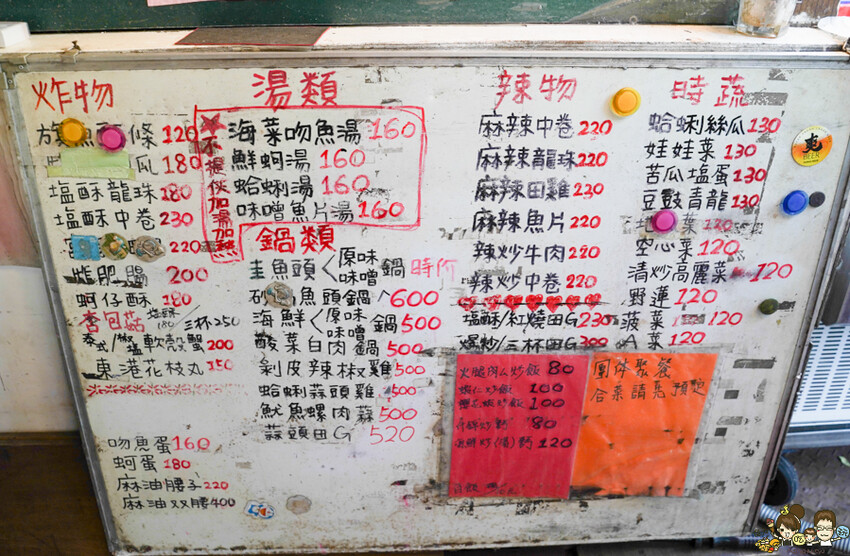 炸物
條 120
瓜 180
塩酥龍珠 180
塩酥中卷 230
220
炸肥腸 200
蚵仔酥 180
杏包菇 塩酥 180 / 三杯 250
泰式/ 軟殼蟹 200
東港花枝丸 150
吻魚蛋 160
蚵蛋 180
麻油腰子 220
麻油双腰 400
湯類
不提伙加湯加熱
海菜吻魚湯 160
鮮蚵湯 160
蛤蜊湯 160
味噌魚片湯 160
鍋類
魚頭 < 原味 味噌 鍋 時价
魚頭鍋 600
海鮮 < 原味 味噌 鍋 500
酸菜白肉鍋 500
剝皮辣椒雞 500
蛤蜊蒜頭雞 500
魷魚螺肉蒜 500
蒜頭田G 520
辣物
麻辣中卷 220
麻辣龍珠 220
麻辣田雞 230
麻辣魚片 220
辣炒牛肉 220
辣炒中卷 220
塩酥/紅燒田G 230
爆炒/三杯田G
火腿肉么炒飯 80
蝦仁炒飯 100
100
80
120
時蔬
蛤蜊絲瓜 130
娃娃菜 130
苦瓜塩蛋 130
豆豉青龍 130
菜 120
空心菜 120
清炒高麗菜 120
野蓮 120
菠菜 120
A菜 120
團体聚餐
合菜請先預訂
BEER